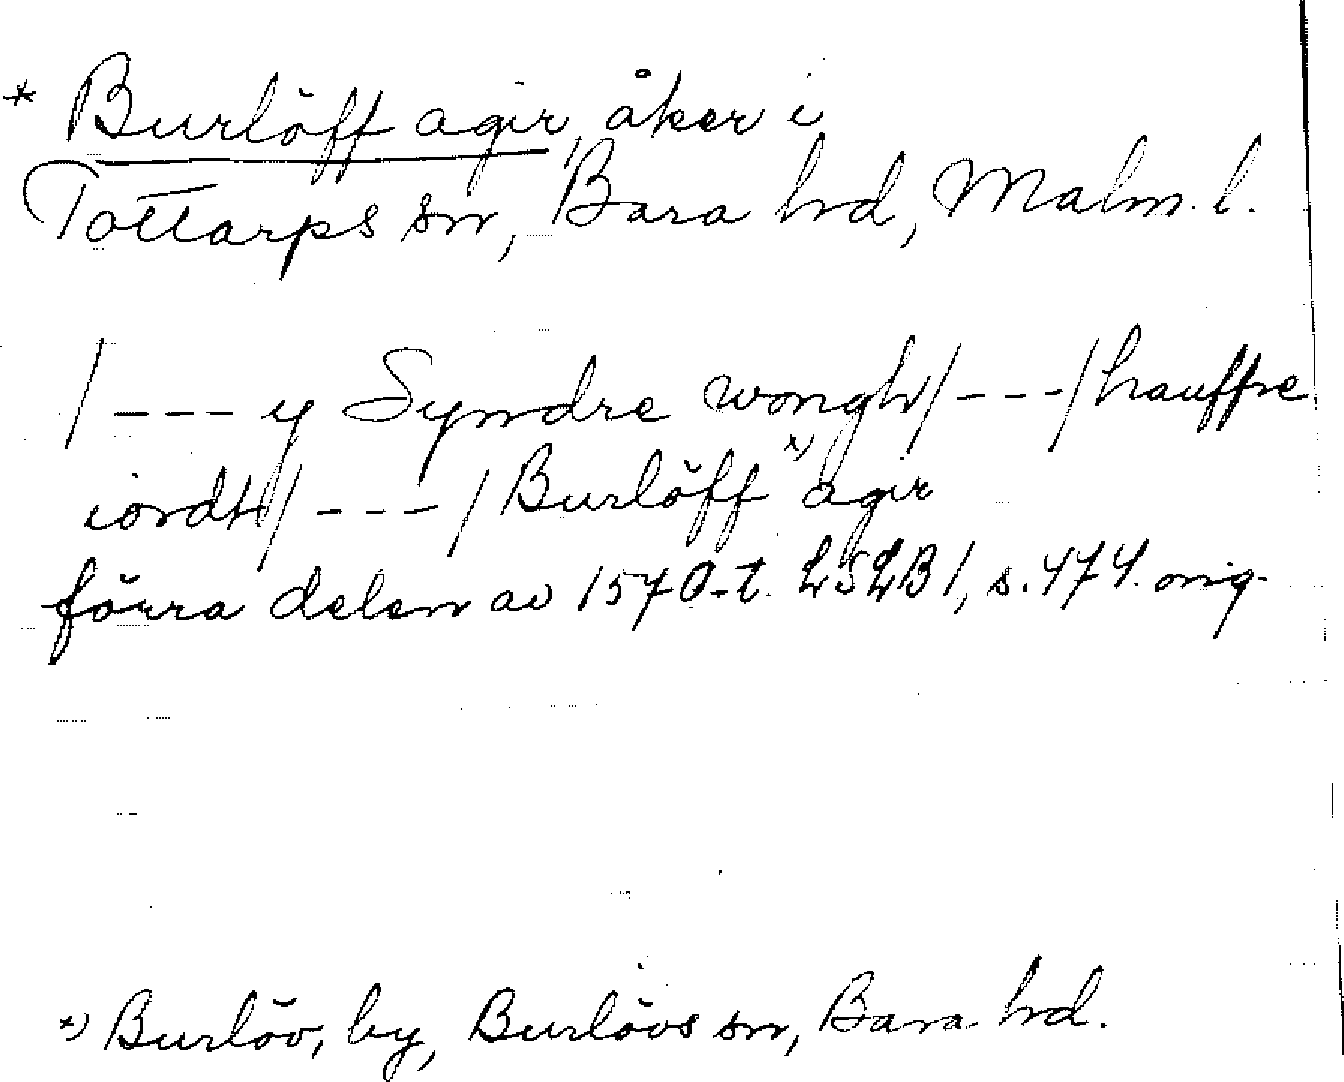 * Burlöff agir, åker i
Tottarps sn, Bara hd, Malm. l.
/--- y Syndre wongh/---/hauffre
iordt/---/Burlöff x) agir
förra delen av 1570-t. LSLB 1, s. 474. orig.
x) Burlöv, by, Burlövs sn, Bara hd.